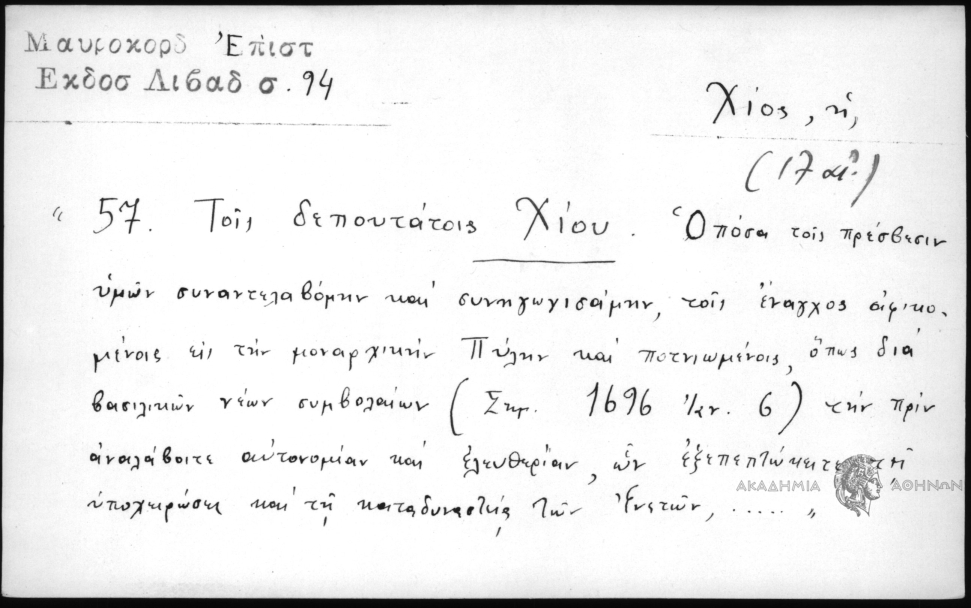 Μαυροκορδ Ἐπιστ
Εκδοσ Λιβαδ σ. 94
Χίος, ἡ,
(17 αἰ.)
“ 57. Τοῖς δεπουτάτοις Χίου. Ὁπόσα τοῖς πρέσβεσιν
ὑμῶν συναντελαβόμην καὶ συνηγωνισάμην, τοῖς ἔναγχος ἀφικο-
μένοις εἰς τὴν μοναρχικὴν Πύλην καὶ ποτνιωμένοις, ὅπως διὰ
βασιλικῶν νέων συμβολαίων (Σημ. 1696 Ἰαν. 6) τὴν πρὶν
ἀναλάβοιτε αὐτονομίαν καὶ ἐλευθερίαν, ὧν ἐξεπεπτώκειτε τῇ
ὑποχειρώσει καὶ τῇ καταδυναστείᾳ τῶν Ἐνετῶν, ..... „
ΑΚΑΔΗΜΙΑ ΑΘΗΝΩΝ